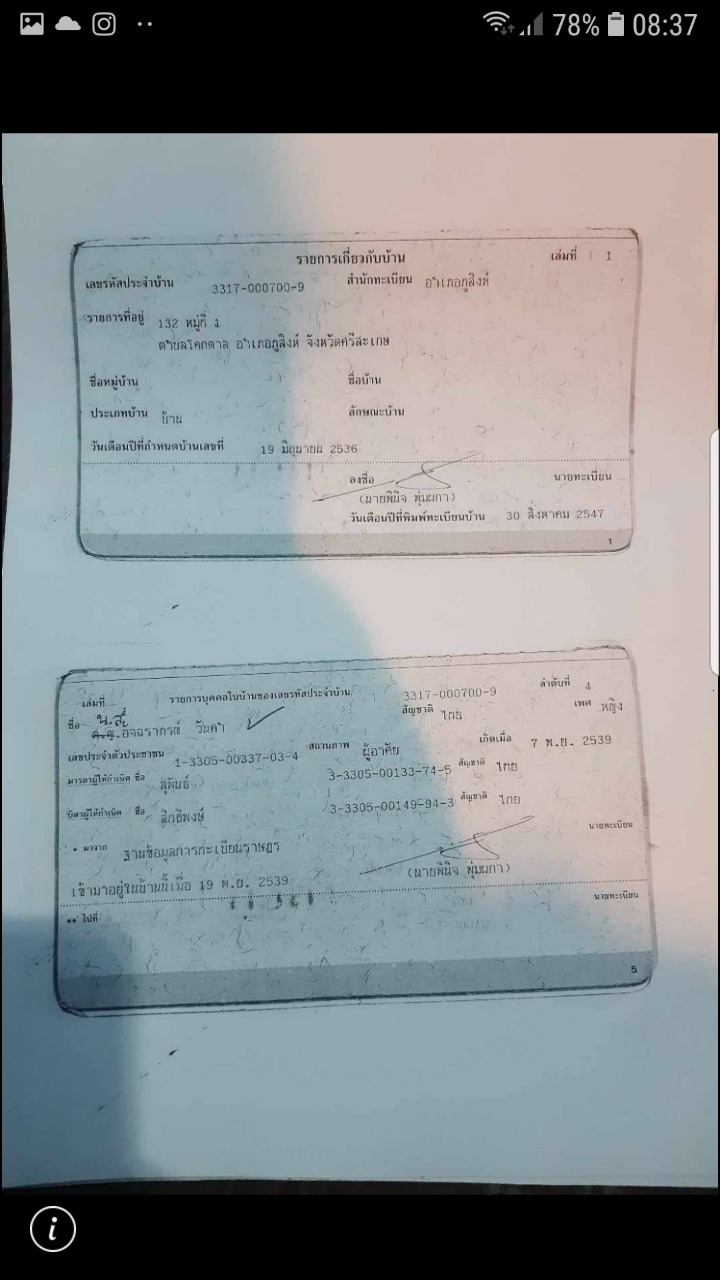 78% 08:37
รายการเกี่ยวกับบ้าน เล่มที่ 1
เลขรหัสประจำบ้าน 3317-000700-9 สำนักทะเบียน อำเภอภูสิงห์
รายการที่อยู่ 132 หมู่ที่ 1
ตำบลโคกตาล อำเภอภูสิงห์ จังหวัดศรีสะเกษ
ชื่อหมู่บ้าน ชื่อบ้าน
ประเภทบ้าน บ้าน ลักษณะบ้าน
วันเดือนปีที่กำหนดบ้านเลขที่ 19 มิถุนายน 2536
ลงชื่อ นายทะเบียน
(นายพินิจ พุ่มผกา)
วันเดือนปีที่พิมพ์ทะเบียนบ้าน 30 สิงหาคม 2547
1
เล่มที่ รายการบุคคลในบ้านของเลขรหัสประจำบ้าน 3317-000700-9 ลำดับที่ 4
ชื่อ น.ส. อัจฉราภรณ์ วันคำ สัญชาติ ไทย เพศ หญิง
เลขประจำตัวประชาชน 1-3305-00337-03-4 สถานภาพ ผู้อาศัย เกิดเมื่อ 7 พ.ย. 2539
มารดาผู้ให้กำเนิด ชื่อ สุพันธ์ 3-3305-00133-74-5 สัญชาติ ไทย
บิดาผู้ให้กำเนิด ชื่อ สิทธิพงษ์ 3-3305-00149-94-3 สัญชาติ ไทย
* มาจาก ฐานข้อมูลการทะเบียนราษฎร นายทะเบียน
(นายพินิจ พุ่มผกา)
เข้ามาอยู่ในบ้านนี้เมื่อ 19 พ.ย. 2539
** ไปที่ นายทะเบียน
5